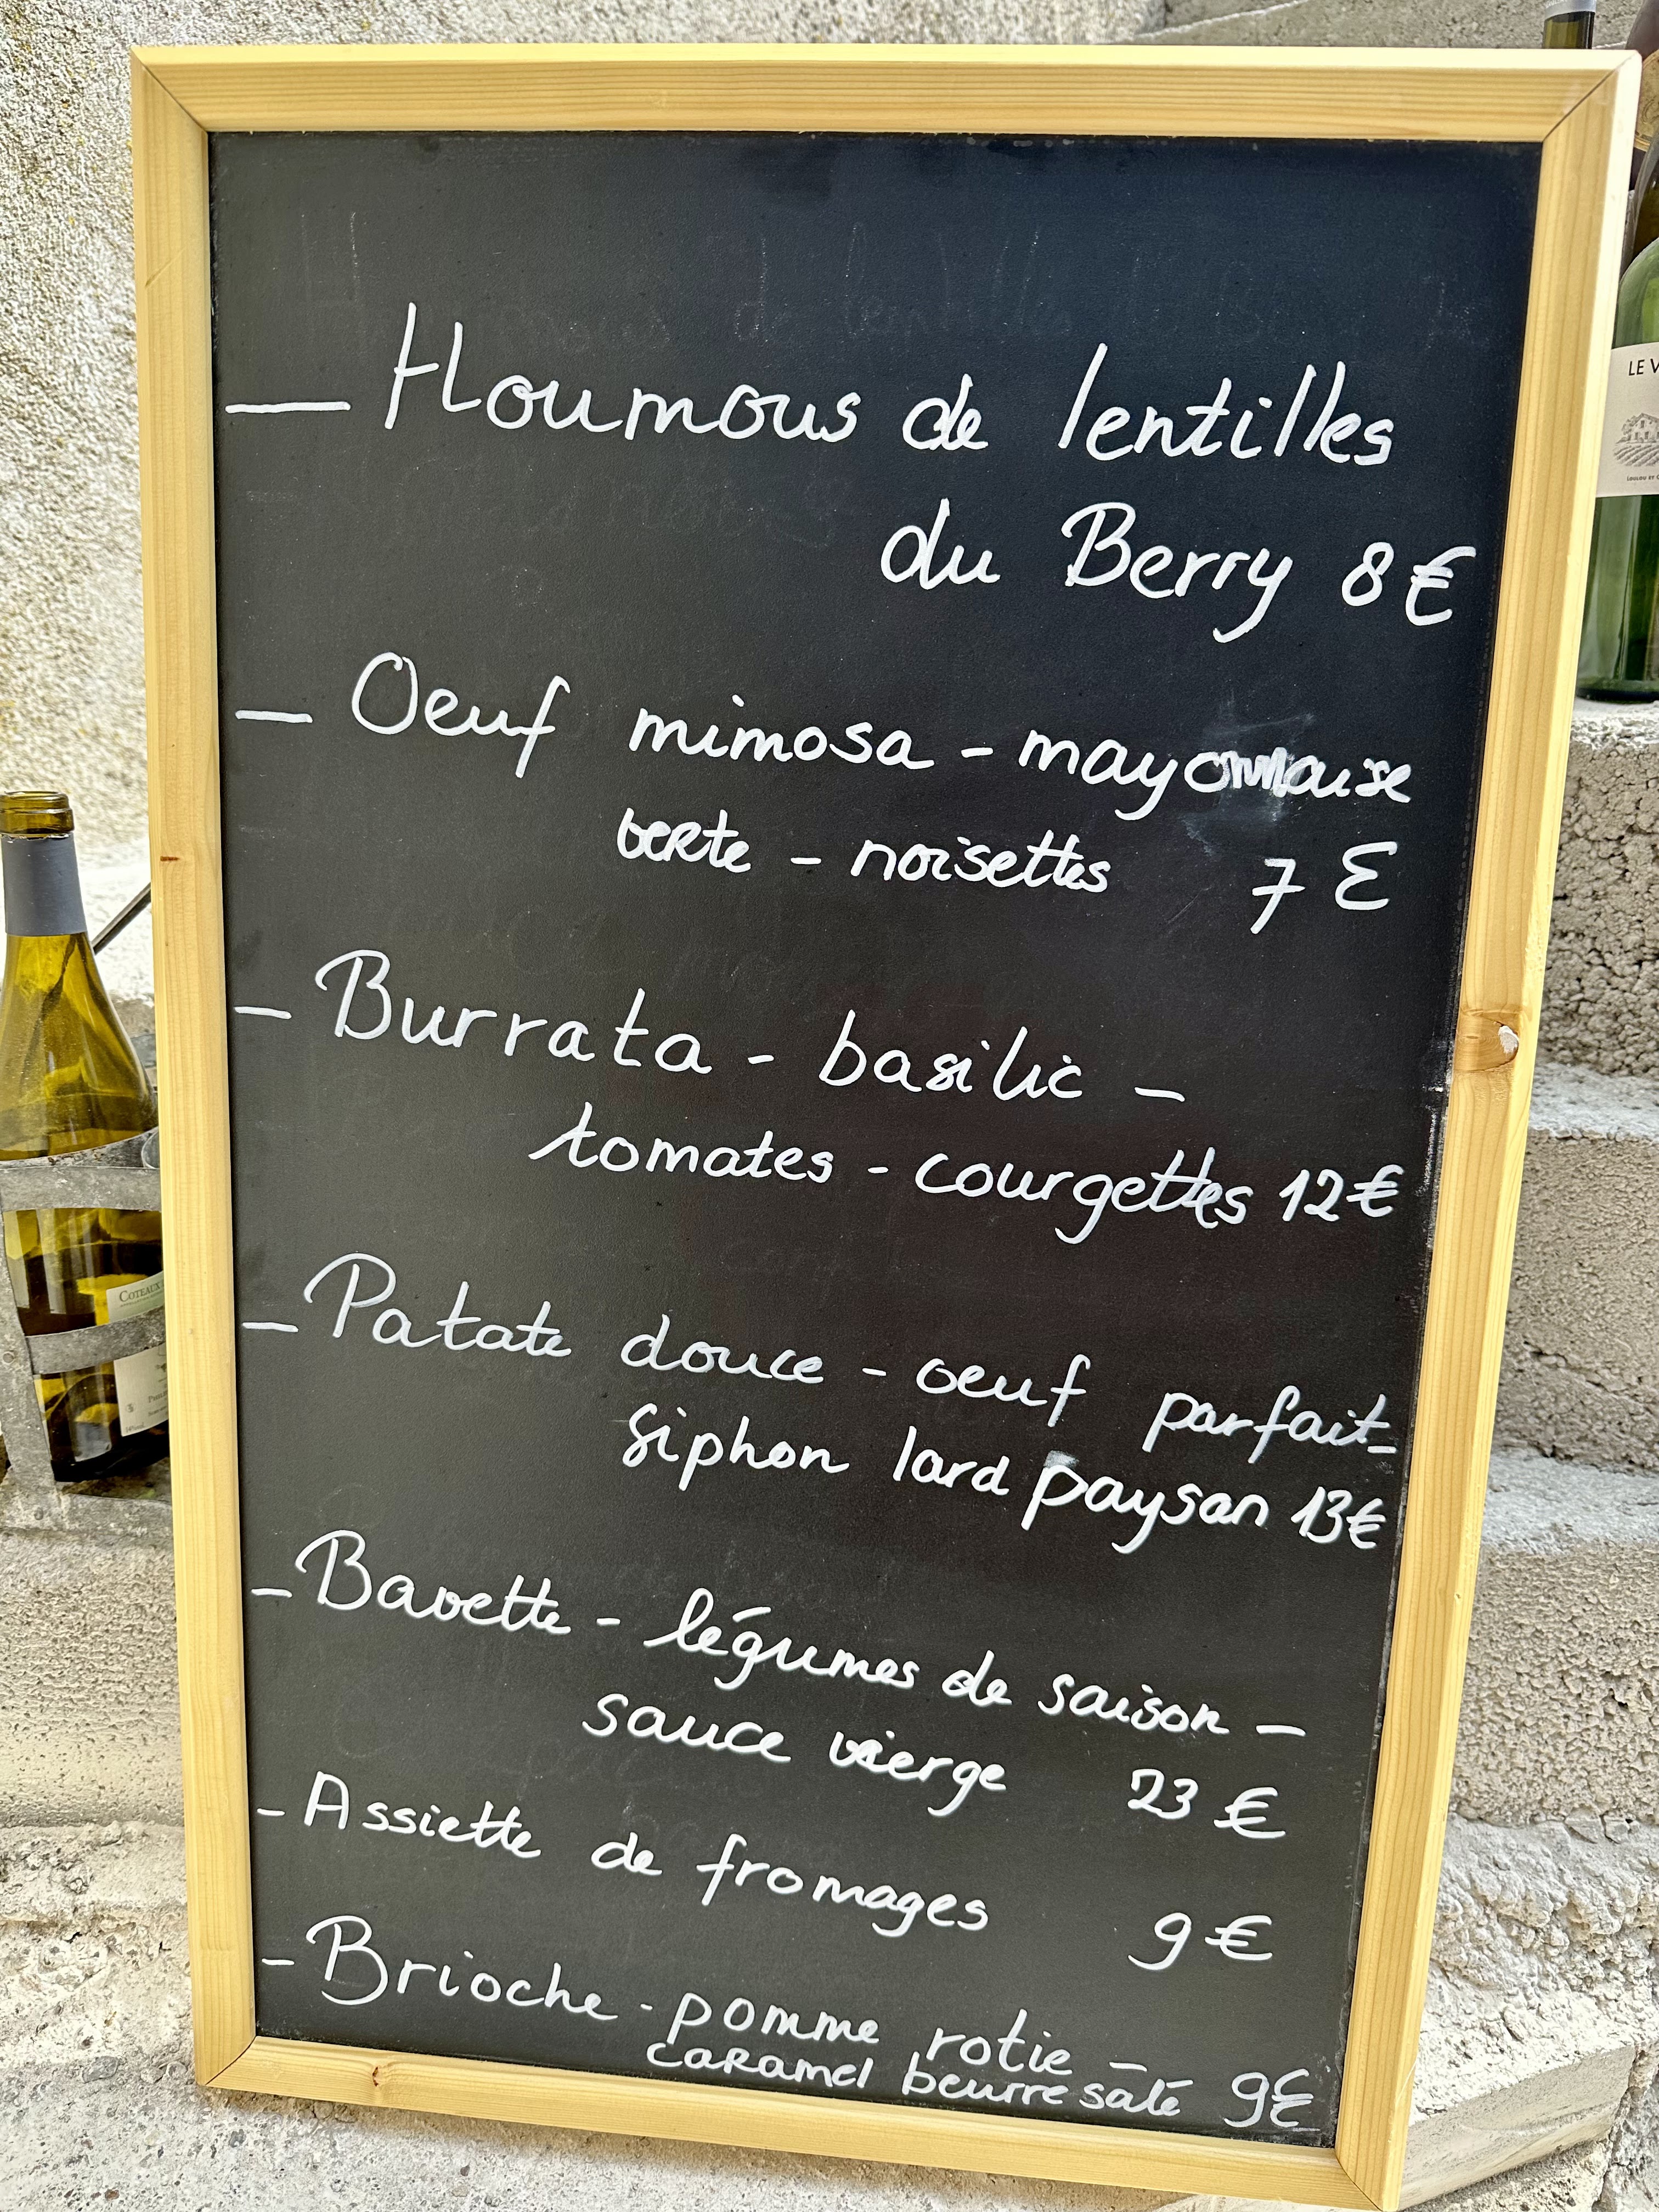 — Houmous de lentilles
du Berry 8€
— Oeuf mimosa - mayonnaise
verte - noisettes 7€
- Burrata - basilic -
tomates - courgettes 12€
- Patate douce - oeuf parfait-
siphon lard paysan 13€
- Bavette - légumes de saison -
sauce vierge 23€
- Assiette de fromages 9€
- Brioche - pomme rotie -
caramel beurre salé 9€
LE V
COTEAUX